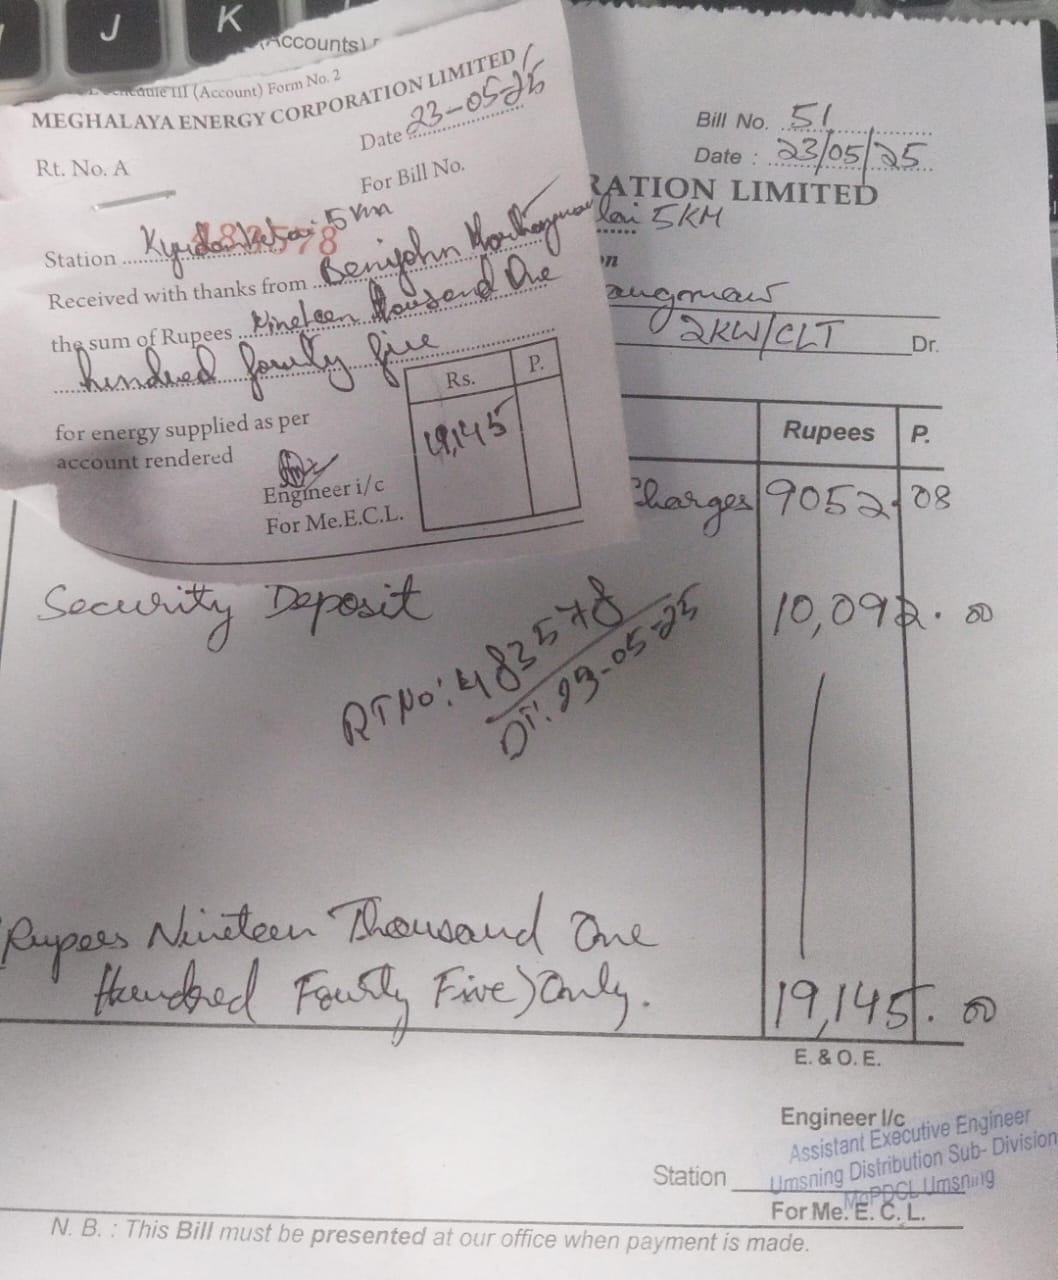 J
K
(Accounts)
Schedule III (Account) Form No. 2
MEGHALAYA ENERGY CORPORATION LIMITED
Date 23-05-25
Rt. No. A
For Bill No.
483578
Station Kyrdemkulai 5 km
Received with thanks from Benijohn
the sum of Rupees Nineteen thousand One
hundred fourty five
Rs. P.
19,145
for energy supplied as per
account rendered
Engineer i/c
For Me.E.C.L.
Bill No. 51
Date : 23/05/25
RATION LIMITED
lai 5KM
on
2KW/CLT Dr.
Rupees P.
Charges 9052.08
Security Deposit 10,092.00
RT No: 483578
DT: 23-05-25
Rupees Nineteen Thousand One
Hundred Fourty Five) Only. 19,145.00
E. & O. E.
Engineer I/c
Assistant Executive Engineer
Umsning Distribution Sub-Division
Station
MePDCL Umsning
For Me. E. C. L.
N. B. : This Bill must be presented at our office when payment is made.